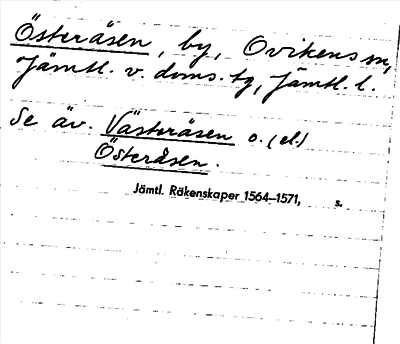 Österåsen, by, Ovikens sn,
Jämtl. v. doms. tg, Jämtl. l.
Se äv. Västeråsen o. (el.)
Österåsen.
Jämtl. Räkenskaper 1564–1571, s.